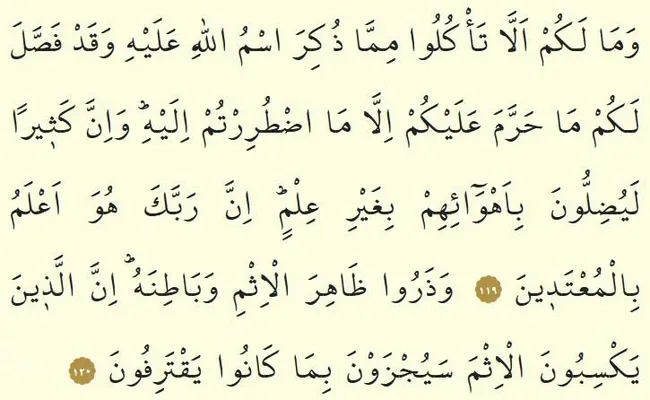 وَمَا لَكُمْ اَلَّا تَأْكُلُوا مِمَّا ذُكِرَ اسْمُ اللّٰهِ عَلَيْهِ وَقَدْ فَصَّلَ
لَكُمْ مَا حَرَّمَ عَلَيْكُمْ اِلَّا مَا اضْطُرِرْتُمْ اِلَيْهِۜ وَاِنَّ كَث۪يرًا
لَيُضِلُّونَ بِاَهْوَٓائِهِمْ بِغَيْرِ عِلْمٍۜ اِنَّ رَبَّكَ هُوَ اَعْلَمُ
بِالْمُعْتَد۪ينَ ١١٩ وَذَرُوا ظَاهِرَ الْاِثْمِ وَبَاطِنَهُۜ اِنَّ الَّذ۪ينَ
يَكْسِبُونَ الْاِثْمَ سَيُجْزَوْنَ بِمَا كَانُوا يَقْتَرِفُونَ ١٢٠